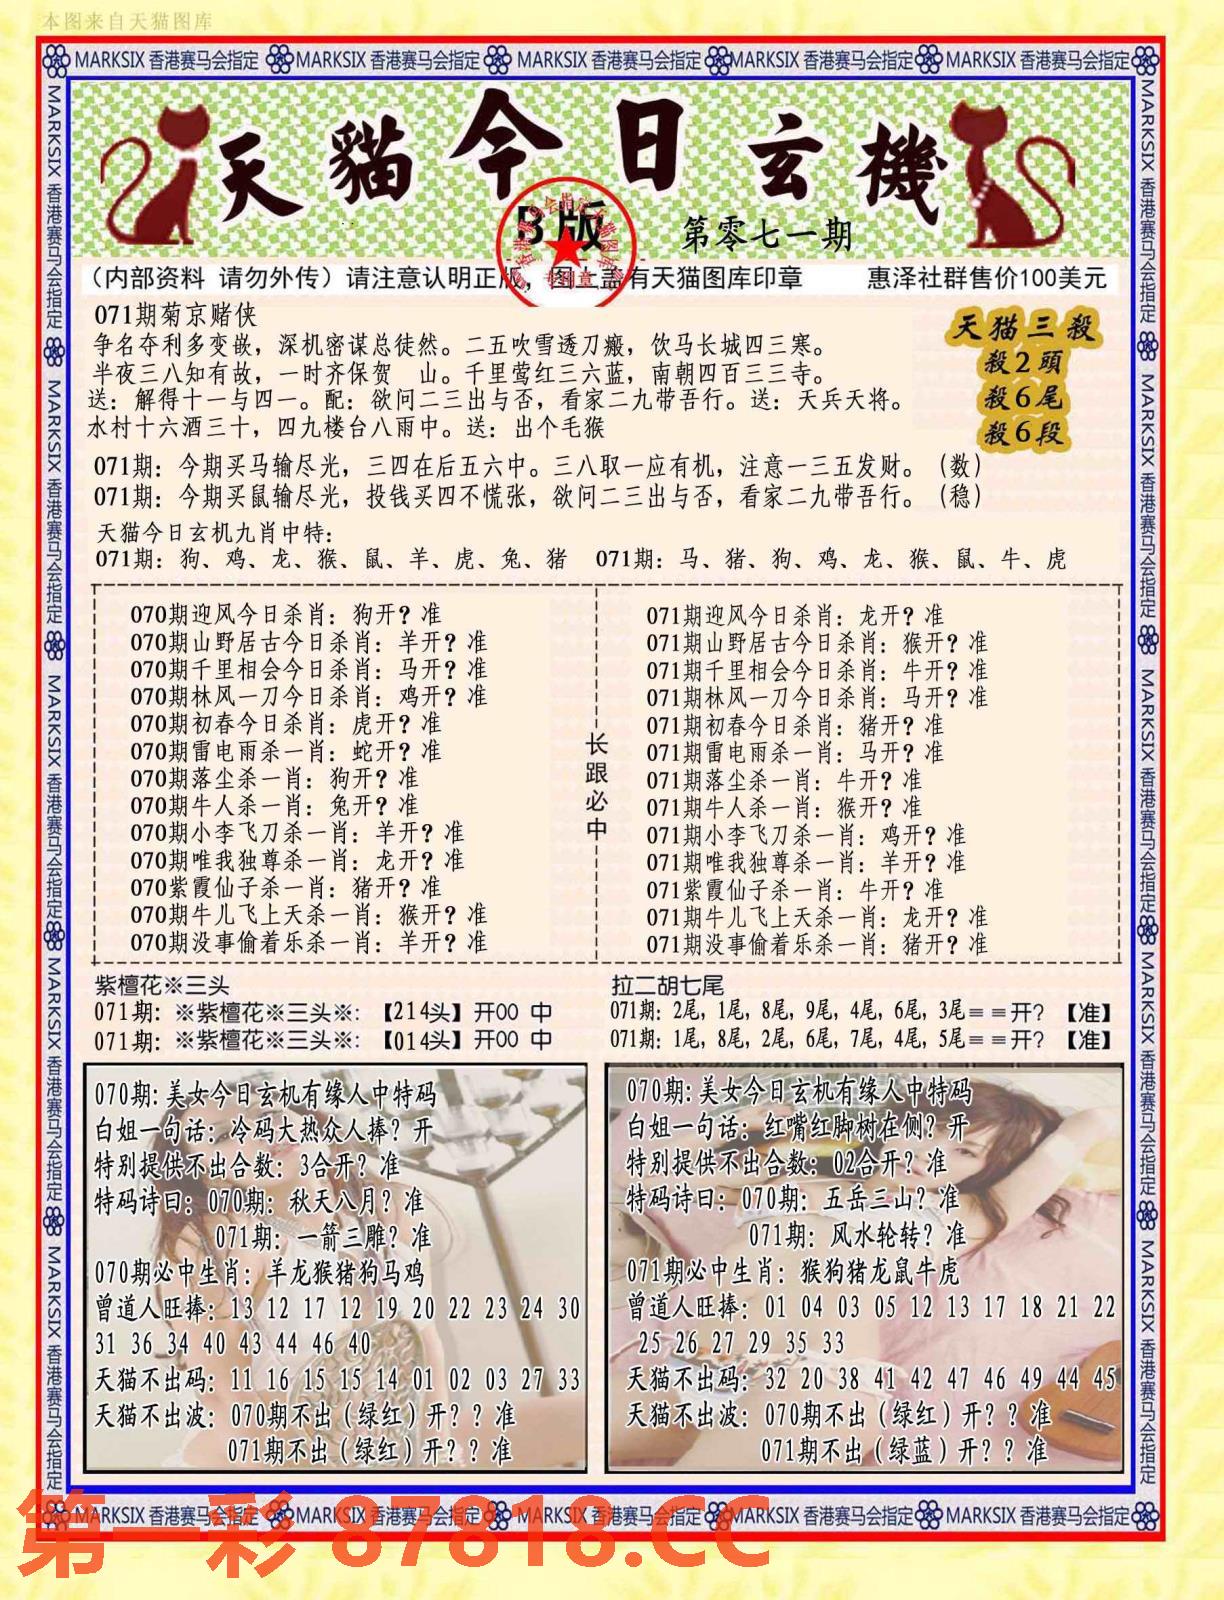 本图来自天猫图库
MARKSIX 香港赛马会指定 MARKSIX 香港赛马会指定 MARKSIX 香港赛马会指定 MARKSIX 香港赛马会指定 MARKSIX 香港赛马会指定
天貓今日玄機
B版
第零七一期
(内部资料 请勿外传) 请注意认明正版，图上盖有天猫图库印章 惠泽社群售价100美元
071期菊京赌侠
争名夺利多变嵌，深机密谋总徒然。二五吹雪透刀瘢，饮马长城四三寒。
半夜三八知有故，一时齐保贺 山。千里莺红三六蓝，南朝四百三三寺。
送：解得十一与四一。配：欲问二三出与否，看家二九带吾行。送：天兵天将。
水村十六酒三十，四九楼台八雨中。送：出个毛猴
天猫三殺
殺2頭
殺6尾
殺6段
071期：今期买马输尽光，三四在后五六中。三八取一应有机，注意一三五发财。（数）
071期：今期买鼠输尽光，投钱买四不慌张，欲问二三出与否，看家二九带吾行。（稳）
天猫今日玄机九肖中特：
071期：狗、鸡、龙、猴、鼠、羊、虎、兔、猪 071期：马、猪、狗、鸡、龙、猴、鼠、牛、虎
070期迎风今日杀肖：狗开？准
070期山野居古今日杀肖：羊开？准
070期千里相会今日杀肖：马开？准
070期林风一刀今日杀肖：鸡开？准
070期初春今日杀肖：虎开？准
070期雷电雨杀一肖：蛇开？准
070期落尘杀一肖：狗开？准
070期牛人杀一肖：兔开？准
070期小李飞刀杀一肖：羊开？准
070期唯我独尊杀一肖：龙开？准
070紫霞仙子杀一肖：猪开？准
070期牛儿飞上天杀一肖：猴开？准
070期没事偷着乐杀一肖：羊开？准
长跟必中
071期迎风今日杀肖：龙开？准
071期山野居古今日杀肖：猴开？准
071期千里相会今日杀肖：牛开？准
071期林风一刀今日杀肖：马开？准
071期初春今日杀肖：猪开？准
071期雷电雨杀一肖：马开？准
071期落尘杀一肖：牛开？准
071期牛人杀一肖：猴开？准
071期小李飞刀杀一肖：鸡开？准
071期唯我独尊杀一肖：羊开？准
071紫霞仙子杀一肖：牛开？准
071期牛儿飞上天杀一肖：龙开？准
071期没事偷着乐杀一肖：猪开？准
紫檀花※三头
071期：※紫檀花※三头※：【214头】开00 中
071期：※紫檀花※三头※：【014头】开00 中
拉二胡七尾
071期：2尾，1尾，8尾，9尾，4尾，6尾，3尾＝＝开？【准】
071期：1尾，8尾，2尾，6尾，7尾，4尾，5尾＝＝开？【准】
070期：美女今日玄机有缘人中特码
白姐一句话：冷码大热众人捧？开
特别提供不出合数：3合开？准
特码诗曰：070期：秋天八月？准
071期：一箭三雕？准
070期必中生肖：羊龙猴猪狗马鸡
曾道人旺捧：13 12 17 12 19 20 22 23 24 30
31 36 34 40 43 44 46 40
天猫不出码：11 16 15 15 14 01 02 03 27 33
天猫不出波：070期不出（绿红）开？？准
071期不出（绿红）开？？准
070期：美女今日玄机有缘人中特码
白姐一句话：红嘴红脚树在侧？开
特别提供不出合数：02合开？准
特码诗曰：070期：五岳三山？准
071期：风水轮转？准
071期必中生肖：猴狗猪龙鼠牛虎
曾道人旺捧：01 04 03 05 12 13 17 18 21 22
25 26 27 29 35 33
天猫不出码：32 20 38 41 42 47 46 49 44 45
天猫不出波：070期不出（绿红）开？？准
071期不出（绿蓝）开？？准
MARKSIX 香港赛马会指定 MARKSIX 香港赛马会指定 MARKSIX 香港赛马会指定 MARKSIX 香港赛马会指定
MARKSIX 香港赛马会指定 MARKSIX 香港赛马会指定 MARKSIX 香港赛马会指定 MARKSIX 香港赛马会指定 MARKSIX 香港赛马会指定
MARKSIX 香港赛马会指定 MARKSIX 香港赛马会指定 MARKSIX 香港赛马会指定 MARKSIX 香港赛马会指定 MARKSIX 香港赛马会指定
第一彩 87818.CC